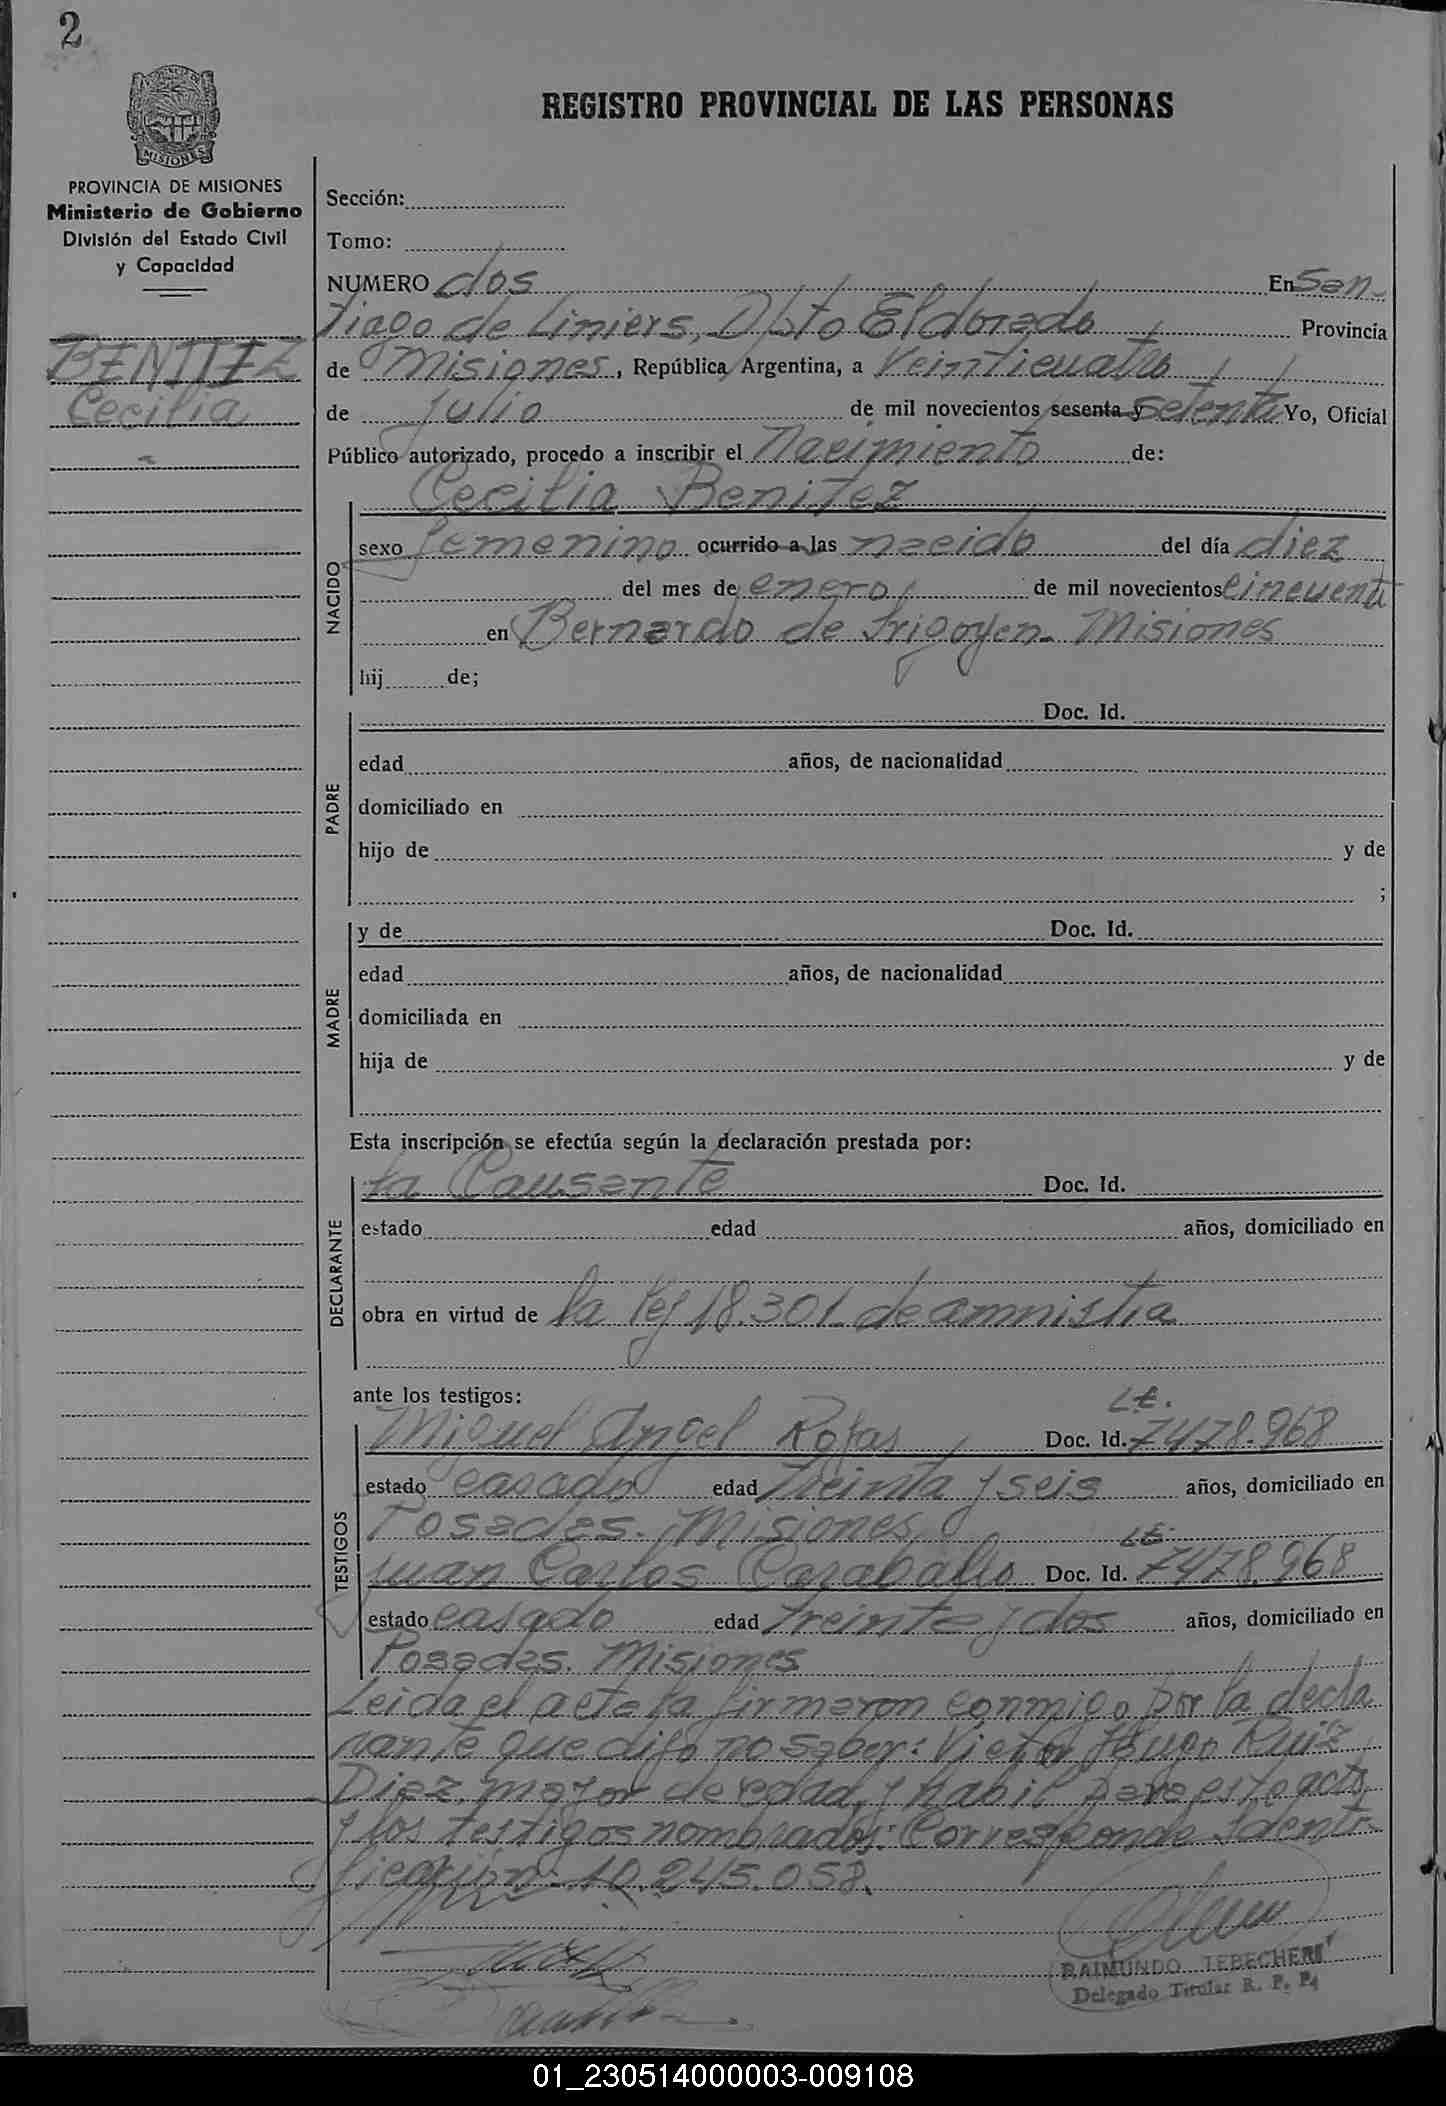 2
MISIONES
PROVINCIA DE MISIONES
Ministerio de Gobierno
División del Estado Civil
y Capacidad
BENITEZ
Cecilia
REGISTRO PROVINCIAL DE LAS PERSONAS
Sección:
Tomo:
NUMERO dos En San-
tiago de Liniers, Dpto Eldorado Provincia
de Misiones, República Argentina, a Veinticuatro
de julio de mil novecientos sesenta y setenta Yo, Oficial
Público autorizado, procedo a inscribir el Nacimiento de:
Cecilia Benitez
NACIDO
sexo femenino ocurrido a las nacido del día diez
del mes de enero de mil novecientos cincuenta
en Bernardo de Irigoyen. Misiones
hij de;
PADRE
Doc. Id.
edad años, de nacionalidad
domiciliado en
hijo de y de
;
MADRE
y de Doc. Id.
edad años, de nacionalidad
domiciliada en
hija de y de
Esta inscripción se efectúa según la declaración prestada por:
DECLARANTE
la Causante Doc. Id.
estado edad años, domiciliado en
obra en virtud de la ley 18.301 de amnistia
ante los testigos:
TESTIGOS
L.E.
Miguel Angel Rojas Doc. Id. 7478.968
estado casado edad treinta y seis años, domiciliado en
Posadas. Misiones
L.E.
Juan Carlos Caraballo Doc. Id. 7478.968
estado casado edad treinta y dos años, domiciliado en
Posadas. Misiones
Leida el acta la firmaron conmigo por la decla
rante que dijo no saber: Victor Hugo Ruiz
Diez, mayor de edad y habil para este acto
y los testigos nombrados: Corresponde Identi-
ficación: 10.245.058.
RAIMUNDO TEBECHERI
Delegado Titular R. P. P.
01_230514000003-009108